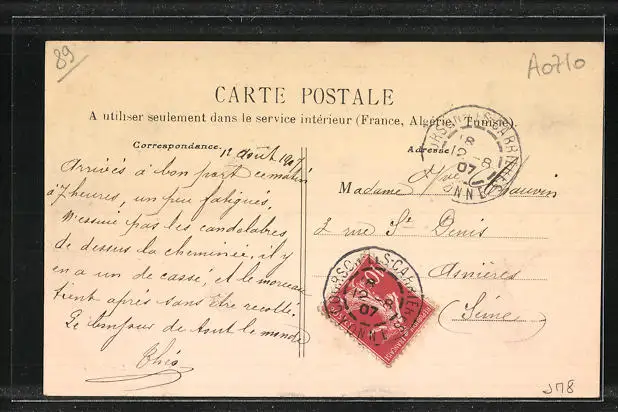 89
A0710
CARTE POSTALE
A utiliser seulement dans le service intérieur (France, Algérie, Tunisie).
Correspondance.
Adresse
12 août 1907
Arrivés à bon port ce matin
à 7 heures, un peu fatigués,
N'essuie pas les candelabres
de dessus la cheminée, il y
en a un de cassé, et le morceau
tient après sans être recollé.
Le bonjour de tout le monde
Madame Chauvin
2 rue St Denis
Asnières
(Seine)
07
07
J78